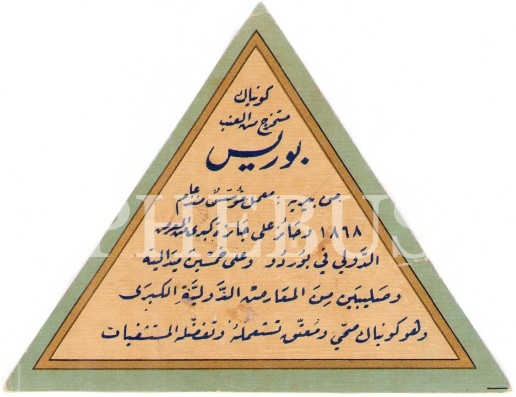 كونياك
مستخرج من العنب
بوريس
من بيير معمل مؤسس منذ عام
١٨٦٨ وحائز على جائزة كبرى من المعرض
الدولي في بوردو وعلى خمسين ميدالية
وصليبين من المعارض الدولية الكبرى
وهو كونياك صحي ومعتق تستعمله وتفضله المستشفيات
PHEBUS